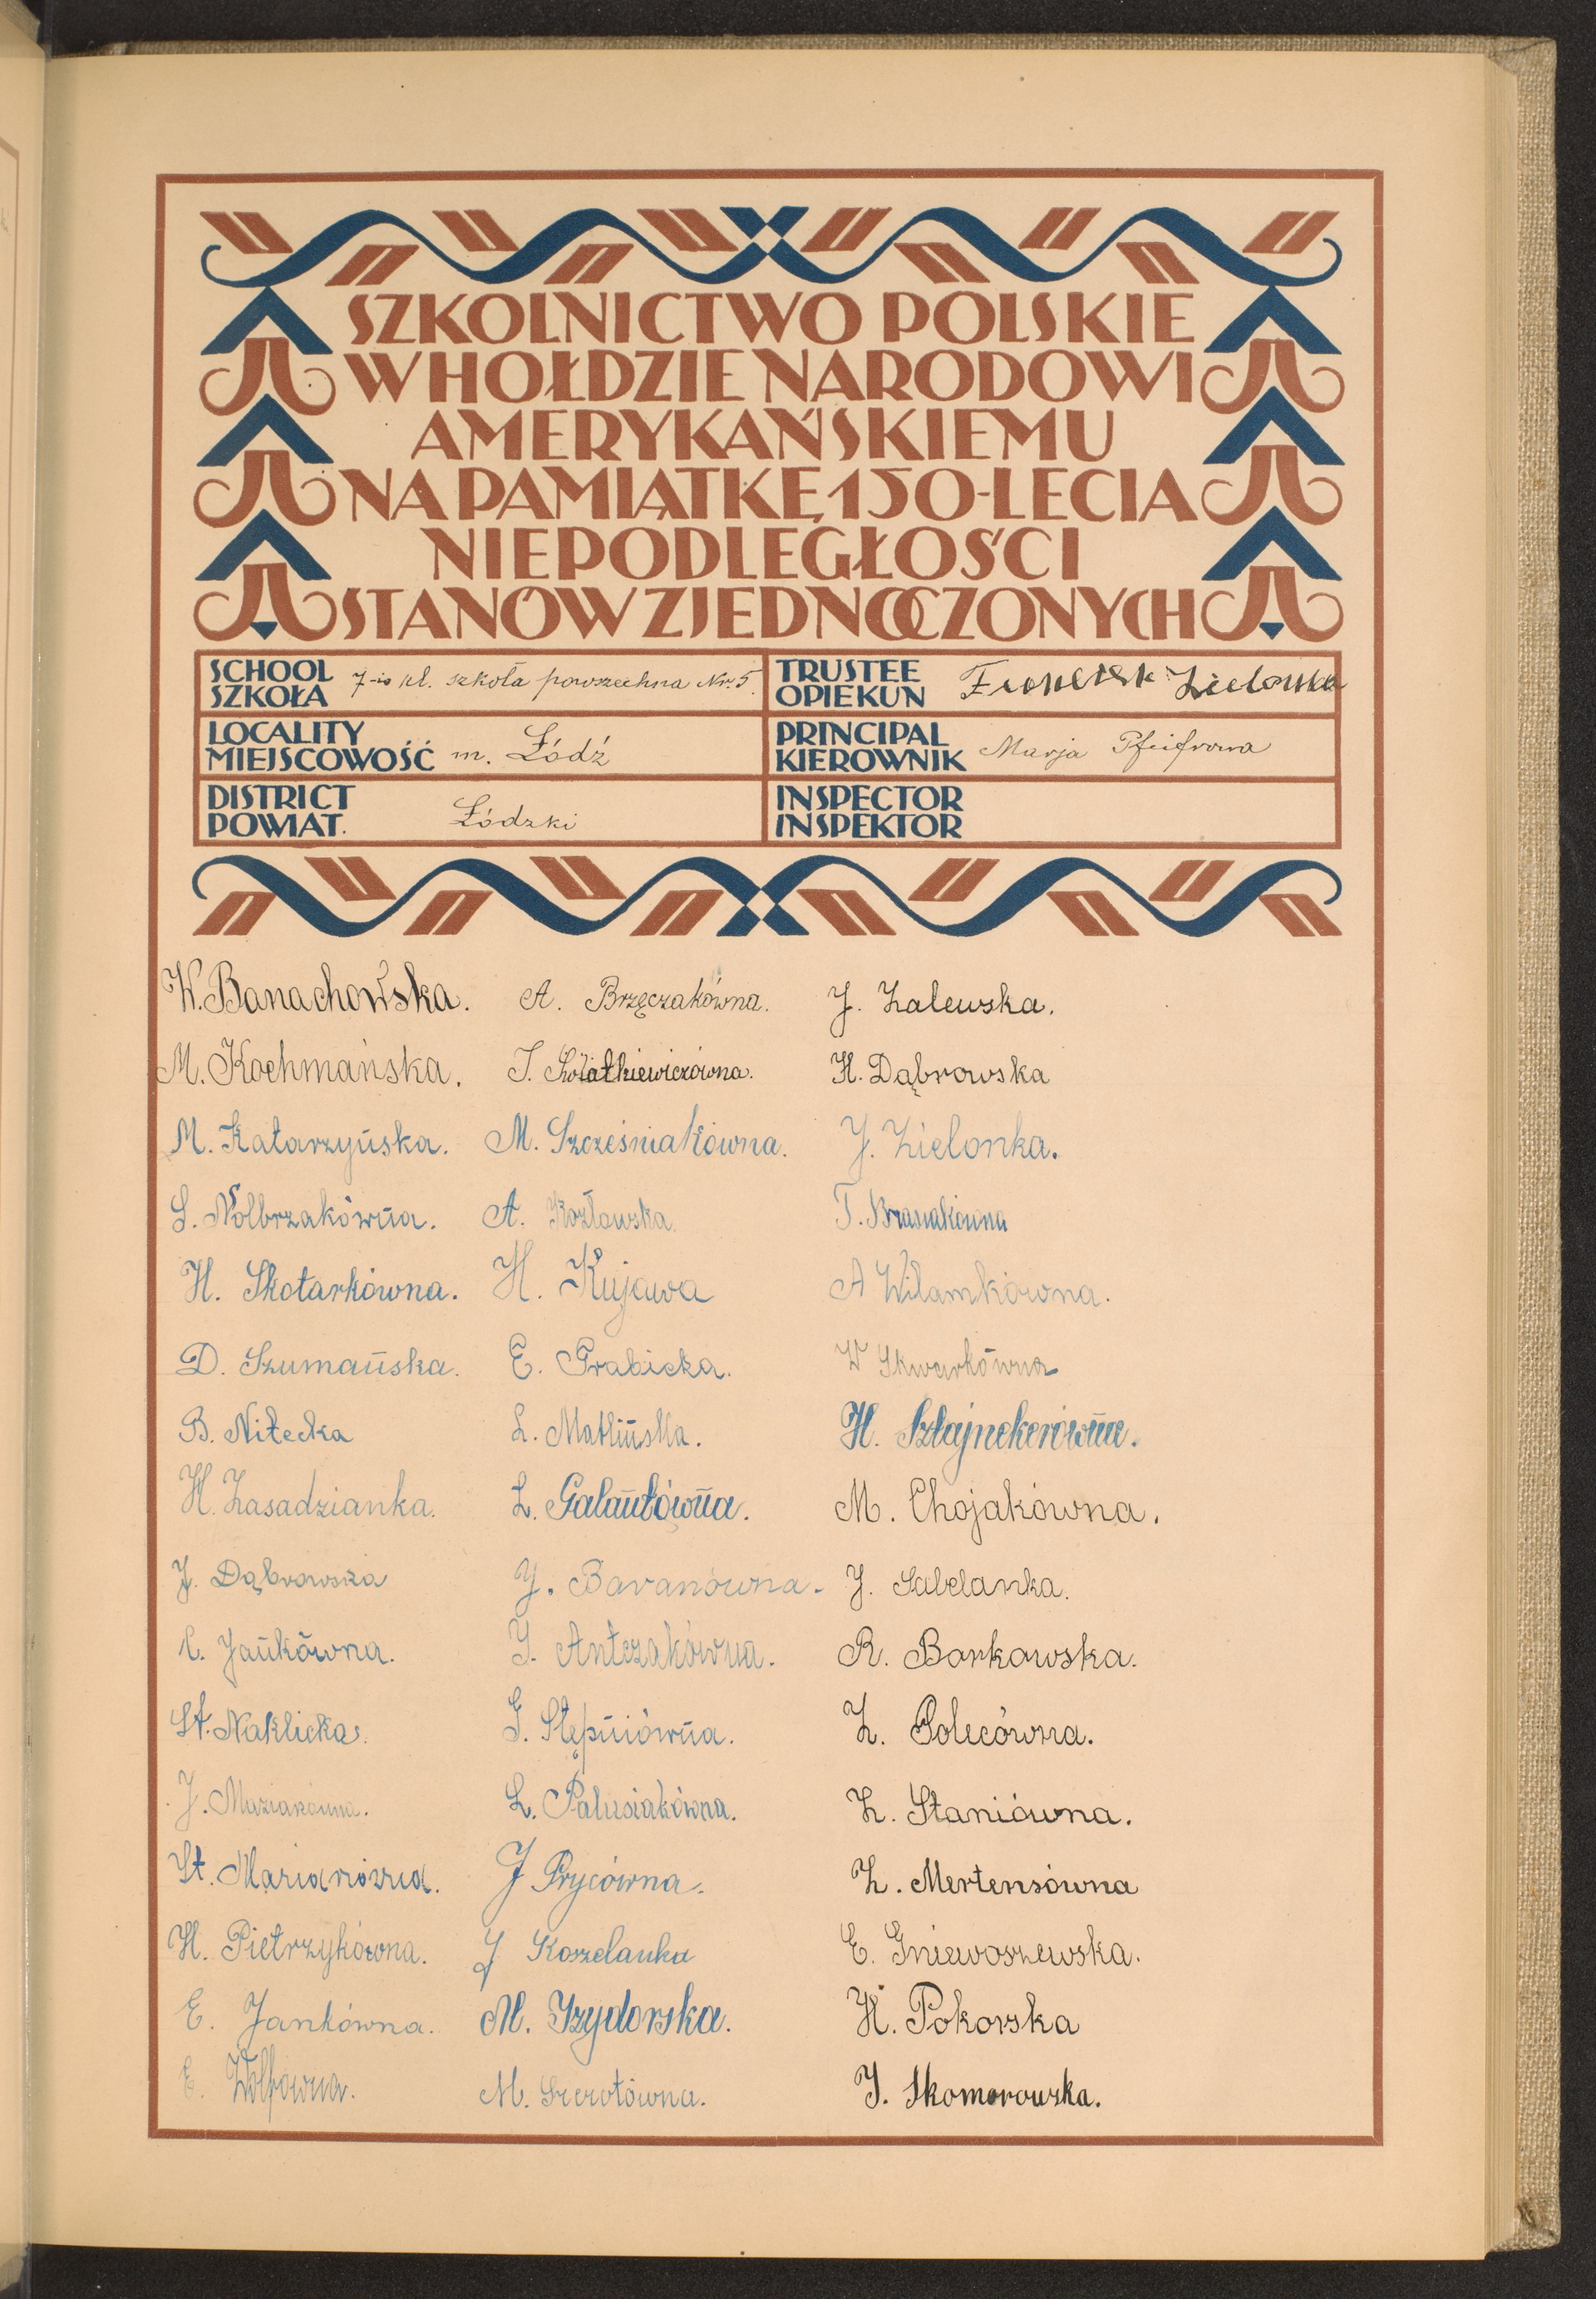 SZKOLNICTWO POLSKIE
W HOŁDZIE NARODOWI
AMERYKAŃSKIEMU
NA PAMIĄTKĘ 150-LECIA
NIEPODLEGŁOŚCI
STANÓW ZJEDNOCZONYCH
SCHOOL
SZKOŁA 7-io kl. szkoła powszechna Nr. 5.
TRUSTEE
OPIEKUN
LOCALITY
MIEJSCOWOŚĆ m. Łódź
PRINCIPAL
KIEROWNIK Marja Pfeifrowa
DISTRICT
POWIAT. Łódzki
INSPECTOR
INSPEKTOR
W. Banachowska.
M. Kochmańska.
M. Katarzyńska.
S. Nolbrzakówna.
H. Skotarkówna.
D. Szumańska.
B. Nitecka
H. Zasadzianka.
J. Dąbrowska
C. Jankówna.
St. Naklicka.
J. Maziakówna.
St. Marianówna.
H. Pietrzykówna.
E. Jankówna.
E. Wolfówna.
A. Brzęczakówna.
M. Szcześniakówna.
A. Kozłowska
H. Kujawa
E. Grabicka.
L. Matlińska.
L. Galantówna.
J. Baranówna.
J. Antczakówna.
G. Stępniówna.
L. Palusiakówna.
J Prycówna.
J Koszelanka
M. Izydorska.
M. Szczotówna.
J. Zalewska.
H. Dąbrowska
J. Zielonka.
T. Brasiakówna
A Wilamkówna.
W Skwarkówna
H. Sztajnekerówna.
M. Chojakówna.
J. Sabelanka.
R. Borkowska.
Z. Golecówna.
Z. Staniówna.
Z. Mertensówna
E. Gniewoszewska.
H. Pokorska
J. Skomorowska.